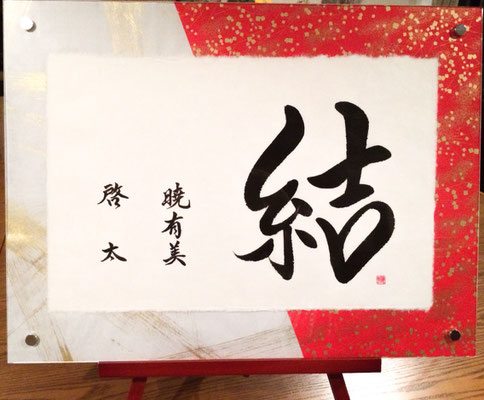 結
暁有美
啓太